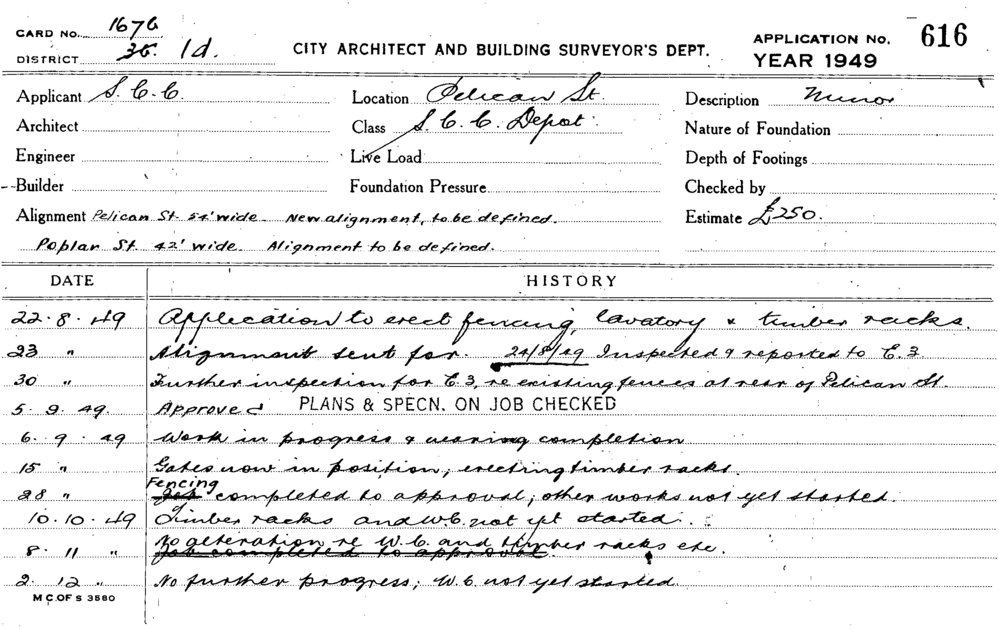 CARD No. 1676
DISTRICT 36. 1d.
CITY ARCHITECT AND BUILDING SURVEYOR'S DEPT.
APPLICATION No. 616
YEAR 1949
Applicant S.C.C. Location Pelican St. Description Minor
Architect Class S.C.C. Depot. Nature of Foundation
Engineer Live Load Depth of Footings
Builder Foundation Pressure Checked by
Alignment Pelican St 54' wide. New alignment, to be defined. Estimate £250.
Poplar St. 42' wide. Alignment to be defined.
DATE HISTORY
22.8.49 Application to erect fencing, lavatory & timber racks.
23 " Alignment sent for. 24/8/49 Inspected & reported to C.3
30 " Further inspection for C.3, re existing fences at rear of Pelican St.
5.9.49. Approved PLANS & SPECN. ON JOB CHECKED
6.9.49 Work in progress & nearing completion
15 " Gates now in position, erecting timber racks.
Fencing
28 " Job completed to approval; other works not yet started.
10.10.49 Timber racks and W.C. not yet started.
No alteration re W.C. and timber racks etc.
8.11 " Job completed to approval.
2.12 " No further progress; W.C. not yet started.
M.C. OF S 3580